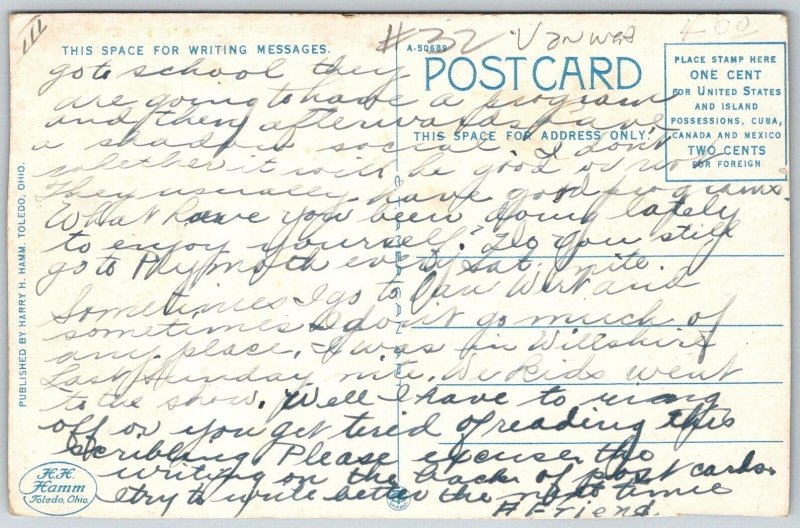 III
#32 Van Wert
400
THIS SPACE FOR WRITING MESSAGES.
A-50689
POST CARD
THIS SPACE FOR ADDRESS ONLY.
PLACE STAMP HERE
ONE CENT
FOR UNITED STATES
AND ISLAND
POSSESSIONS, CUBA,
CANADA AND MEXICO
TWO CENTS
FOR FOREIGN
go to school they
are going to have a program
and then afterwards have
a shadow social. I don't
whether it will be good or not
They usually have good programs.
What have you been doing lately
to enjoy yourself. Do you still
go to Plymoth every Sat. nite.
Sometimes I go to Van Wert and
sometimes I don't go much of
any place. I was in Willshire
Last Sunday nite. We kids went
to the show. Well I have to ring
off or you get tired of reading this
scribling. Please excuse the
writing on the back of post cards.
try to write better the next time
A Friend.
PUBLISHED BY HARRY H. HAMM. TOLEDO, OHIO.
H.H.
Hamm
Toledo, Ohio.